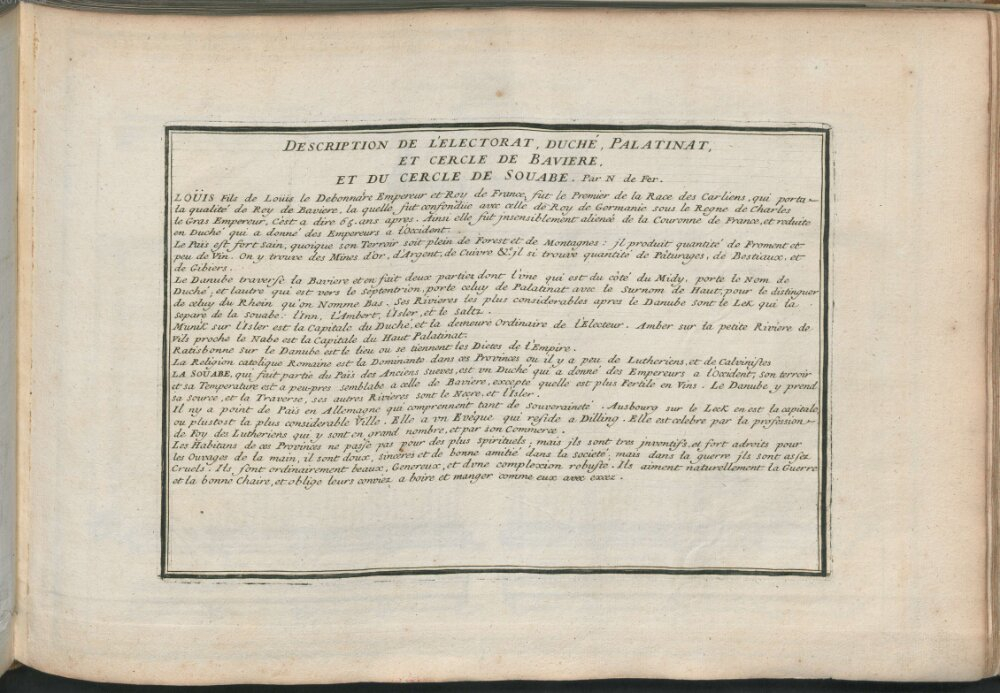 DESCRIPTION DE L'ELECTORAT, DUCHÉ, PALATINAT,
ET CERCLE DE BAVIERE,
ET DU CERCLE DE SOUABE. Par N de Fer.
LOÜIS Fils de Louis le Debonnare Empereur et Roy de France, fut le Premier de la Race des Carliens, qui porta
la qualité de Roy de Baviere, la quelle fut confondue avec celle de Roy de Germanie sous le Regne de Charles
le Gras Empereur, C'est a dire 65 ans apres. Ainsi elle fut insensiblement alienée de la Couronne de France, et reduite
en Duché qui a donné des Empereurs a l'Occident.
Le Païs est fort sain, quoique son Terroir soit plein de Forest et de Montagnes: jl produit quantité de Froment et
peu de Vin. On y trouve des Mines d'or, d'Argent, de Cuivre &c. jl si trouve quantité de Pâturages, de Bestiaux, et
de Gibiers.
Le Danube traverse la Baviere et en fait deux parties dont l'vne qui est du côté du Midy, porte le Nom de
Duché, et lautre qui est vers le Septentrion, porte celuy de Palatinat avec le Surnom de Haut, pour le distinguer
de celuy du Rhein qu'on Nomme Bas. Ses Rivieres les plus considerables apres le Danube sont le Lek qui la
separe de la souabe: l'Inn, L'Ambert, l'Isler, et le saltz.
Munik sur l'Isler est la Capitale du Duché, et la demeure Ordinaire de l'Electeur. Amber sur la petite Riviere de
Vils proche le Nabe est la Capitale du Haut Palatinat.
Ratisbonne sur le Danube est le lieu ou se tiennent les Dietes de l'Empire.
La Religion catolique Romaine est la Dominante dans ces Provinces ou il y a peu de Lutheriens, et de Calvinistes
LA SOÜABE, qui fait partie du Païs des Anciens sueves, est vn Duché qui a donné des Empereurs a l'Occident, son terroir
et sa Temperature est a peu-pres semblabe a celle de Baviere, excepté quelle est plus Fertile en Vins. Le Danube y prend
sa source, et la Traverse, ses autres Rivieres sont le Necre, et l'Isler.
Il ny a point de Païs en Allemagne qui comprennent tant de souveraineté. Ausbourg sur le Leck en est la capitale,
ou plustost la plus considerable Ville. Elle a vn Evéque qui reside a Dilling. Elle est celebre par la profession
de Foy des Lutheriens qui y sont en grand nombre, et par son Commerce.
Les Habitans de ces Provinces ne passe pas pour des plus spirituels, mais jls sont tres jnventifs, et fort adroits pour
les Ouvages de la main, il sont doux, sinceres et de bonne amitié dans la societé, mais dans la guerre jls sont assez
Cruels. Ils sont ordinairement beaux, Genereux, et d'vne complexion robuste. Ils aiment naturellement la Guerre
et la bonne Chaire, et oblige leurs conviez a boire et manger comme eux avec excez.